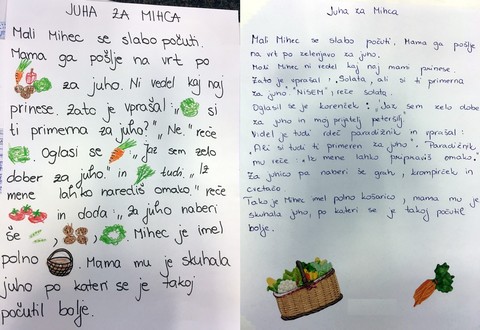 JUHA ZA MIHCA
Mali Mihec se slabo počuti.
Mama ga pošlje na vrt po
za juho. Ni vedel kaj naj
prinese. Zato je vprašal: „ si
ti primerna za juho?" „Ne." reče
. Oglasi se „Jaz sem zelo
dober za juho." in tudi. „Iz
mene lahko narediš omako." reče
in doda: „Za juho naberi
še , , . Mihec je imel
polno . Mama mu je skuhala
juho po kateri se je takoj
počutil bolje.
Juha za Mihca
Mali Mihec se slabo počuti. Mama ga pošlje
na vrt po zelenjavo za juho.
Mali Mihec ni vedel kaj naj mami prinese.
Zato je vprašal, „Solata, ali si ti primerna
za juho. "NISEM", reče solata.
Oglasil se je korenček: „Jaz sem zelo dober
za juho in moj prijatelj peteršilj.
Videl je tudi rdeč paradižnik in vprašal:
„Ali si tudi ti primeren za juho". Paradižnik
mu reče: „Iz mene lahko pripraviš omako."
Za juhico pa naberi še grah, krompirček in
cvetačo.
Tako je Mihec imel polno košarico, mama mu je
skuhala juho, po kateri se je takoj počutil
bolje.